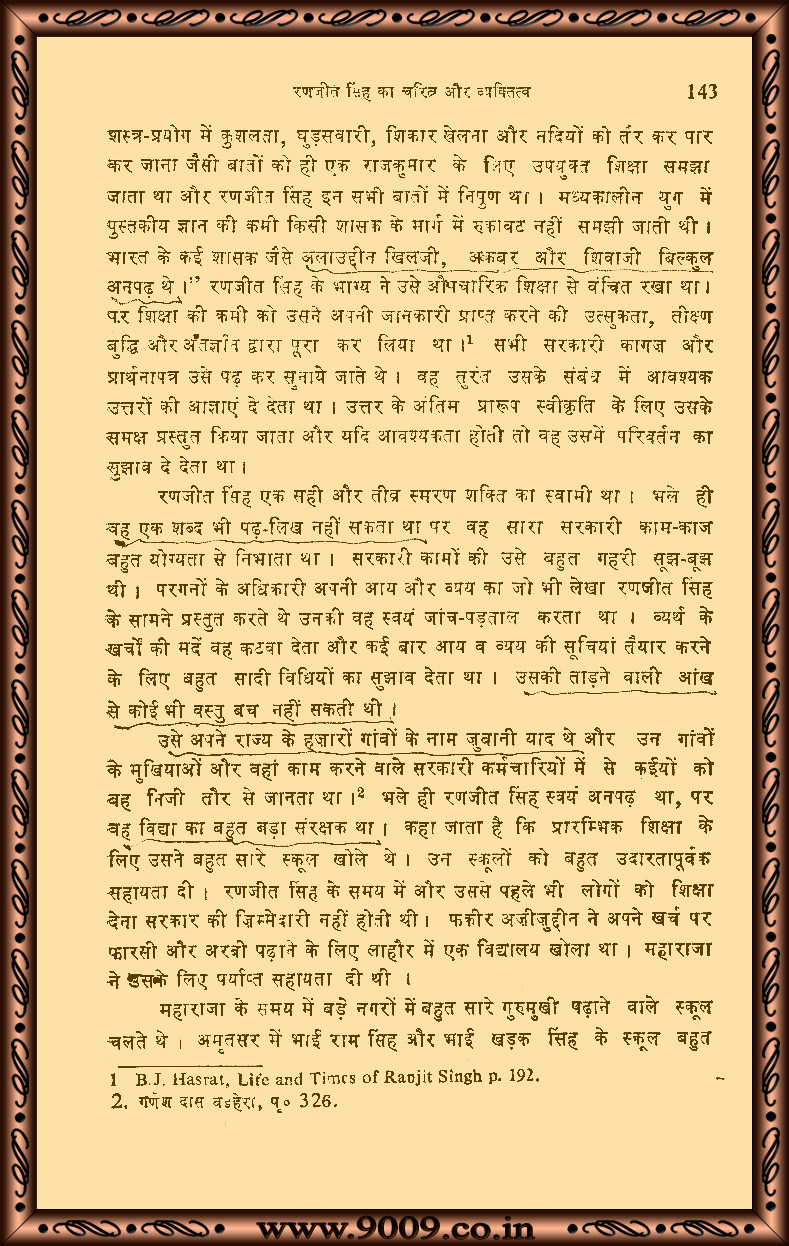 रणजीत सिंह का चरित्र और व्यक्तित्व 143
शस्त्र-प्रयोग में कुशलता, घुड़सवारी, शिकार खेलना और नदियों को तैर कर पार
कर जाना जैसी बातों को ही एक राजकुमार के लिए उपयुक्त शिक्षा समझा
जाता था और रणजीत सिंह इन सभी बातों में निपुण था। मध्यकालीन युग में
पुस्तकीय ज्ञान की कमी किसी शासक के मार्ग में रुकावट नहीं समझी जाती थी।
भारत के कई शासक जैसे अलाउद्दीन खिलजी, अकबर और शिवाजी बिल्कुल
अनपढ़ थे।" रणजीत सिंह के भाग्य ने उसे औपचारिक शिक्षा से वंचित रखा था।
पर शिक्षा की कमी को उसने अपनी जानकारी प्राप्त करने की उत्सुकता, तीक्ष्ण
बुद्धि और अंतर्ज्ञान द्वारा पूरा कर लिया था।¹ सभी सरकारी कागज़ और
प्रार्थनापत्र उसे पढ़ कर सुनाये जाते थे। वह तुरंत उसके संबंध में आवश्यक
उत्तरों की आज्ञाएं दे देता था। उत्तर के अंतिम प्रारूप स्वीकृति के लिए उसके
समक्ष प्रस्तुत किया जाता और यदि आवश्यकता होती तो वह उसमें परिवर्तन का
सुझाव दे देता था।
रणजीत सिंह एक सही और तीव्र स्मरण शक्ति का स्वामी था। भले ही
वह एक शब्द भी पढ़-लिख नहीं सकता था पर वह सारा सरकारी काम-काज
बहुत योग्यता से निभाता था। सरकारी कामों की उसे बहुत गहरी सूझ-बूझ
थी। परगनों के अधिकारी अपनी आय और व्यय का जो भी लेखा रणजीत सिंह
के सामने प्रस्तुत करते थे उनकी वह स्वयं जांच-पड़ताल करता था। व्यर्थ के
खर्चों की मदें वह कटवा देता और कई बार आय व व्यय की सूचियां तैयार करने
के लिए बहुत सादी विधियों का सुझाव देता था। उसकी ताड़ने वाली आंख
से कोई भी वस्तु बच नहीं सकती थी।
उसे अपने राज्य के हज़ारों गांवों के नाम जुबानी याद थे और उन गांवों
के मुखियाओं और वहां काम करने वाले सरकारी कर्मचारियों में से कईयों को
वह निजी तौर से जानता था।² भले ही रणजीत सिंह स्वयं अनपढ़ था, पर
वह विद्या का बहुत बड़ा संरक्षक था। कहा जाता है कि प्रारम्भिक शिक्षा के
लिए उसने बहुत सारे स्कूल खोले थे। उन स्कूलों को बहुत उदारतापूर्वक
सहायता दी। रणजीत सिंह के समय में और उससे पहले भी लोगों को शिक्षा
देना सरकार की ज़िम्मेदारी नहीं होती थी। फकीर अज़ीज़ुद्दीन ने अपने खर्च पर
फारसी और अरबी पढ़ाने के लिए लाहौर में एक विद्यालय खोला था। महाराजा
ने उसके लिए पर्याप्त सहायता दी थी।
महाराजा के समय में बड़े नगरों में बहुत सारे गुरुमुखी पढ़ाने वाले स्कूल
चलते थे। अमृतसर में भाई राम सिंह और भाई खड़क सिंह के स्कूल बहुत
1 B.J. Hasrat, Life and Times of Ranjit Singh p. 192.
2. गणेश दास वडहेरा, पृ० 326.
www.9009.co.in